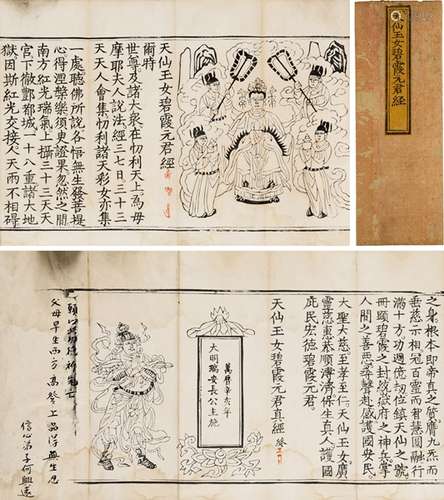 天仙玉女碧霞元君經
天仙玉女碧霞元君經
爾時
世尊及諸大衆在忉利天上為母
摩耶夫人說法經三七日三十二
天天人會集忉利諸天彩女亦集
一處聽佛所說各悟無生發菩提
心得涅槃樂須臾證果忽然之間
南方紅光瑞氣上攝三十三天天
宮下徹酆都城一十八重諸大地
獄因斯紅光交接人天兩不相礙
之身根本即真一之質膺九炁而
垂慈示相冠百靈而智慧圓融行
滿十方功週億劫位鎮天仙之號
冊顯碧霞之封統嶽府之神兵掌
人間之善惡尋聲赴感護國安民
大聖大慈至孝至仁天仙玉女廣
靈慈惠恭順溥濟保生真人護國
庇民宏德碧霞元君
天仙玉女碧霞元君真經 終
萬曆辛亥年
大明瑞安長公主施
願以此功德祈
父母早生西方
信心弟子何興遠